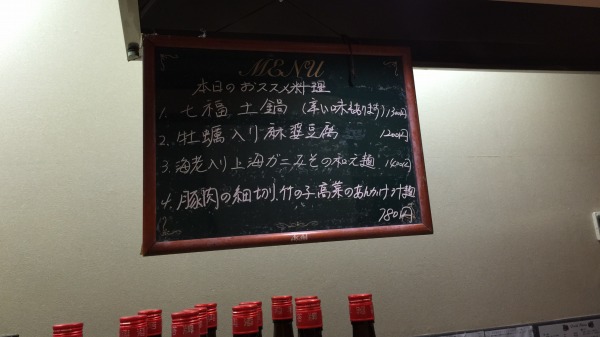 MENU
本日のおススメ料理
1. 七福土鍋 (辛い味もあります) 1300円
2. 牡蠣入り麻婆豆腐 1200円
3. 海老入り上海ガニみその和え麺 1400円
4. 豚肉の細切り、竹の子、高菜のあんかけ汁麺
780円